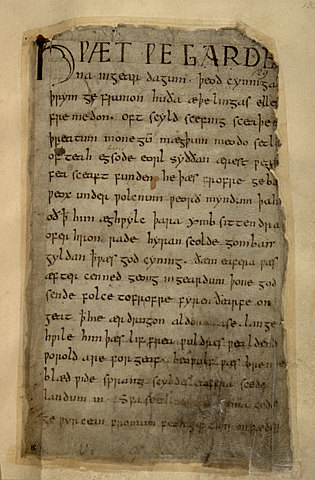 HǷÆT ǷE GARDE
na ingear dagum. þeod cyninga
þrym ge frunon huða æþelingas elle
fre medon. oft scyld scefing sceaþe
þreatum monegū mægþum meodo setla
of teah egsode eorl syððan ærest ƿear
fea sceaft funden he þæs frofre geba
ƿeox under ƿolcnum ƿeorð myndum þah
oð ꝥ him æghƿylc þara ymb sittendra
ofer hron rade hyran scolde gomban
gyldan ꝥ ƿæs god cyning. ðæm eafera ƿæs
æfter cenned geong ingeardum þone god
sende folce tofrofre fyren ðearfe on
geat ꝥ hie ær drugon aldor ase. lange
hƿile him þæs lif frea ƿuldres ƿealdend
ƿorold are forgeaf. beoƿulf ƿæs breme
blæd ƿide sprang scyldes eafera scede
landum in. Sƿa guma gode
ge ƿyrcean fromum feoh giftum on fæder